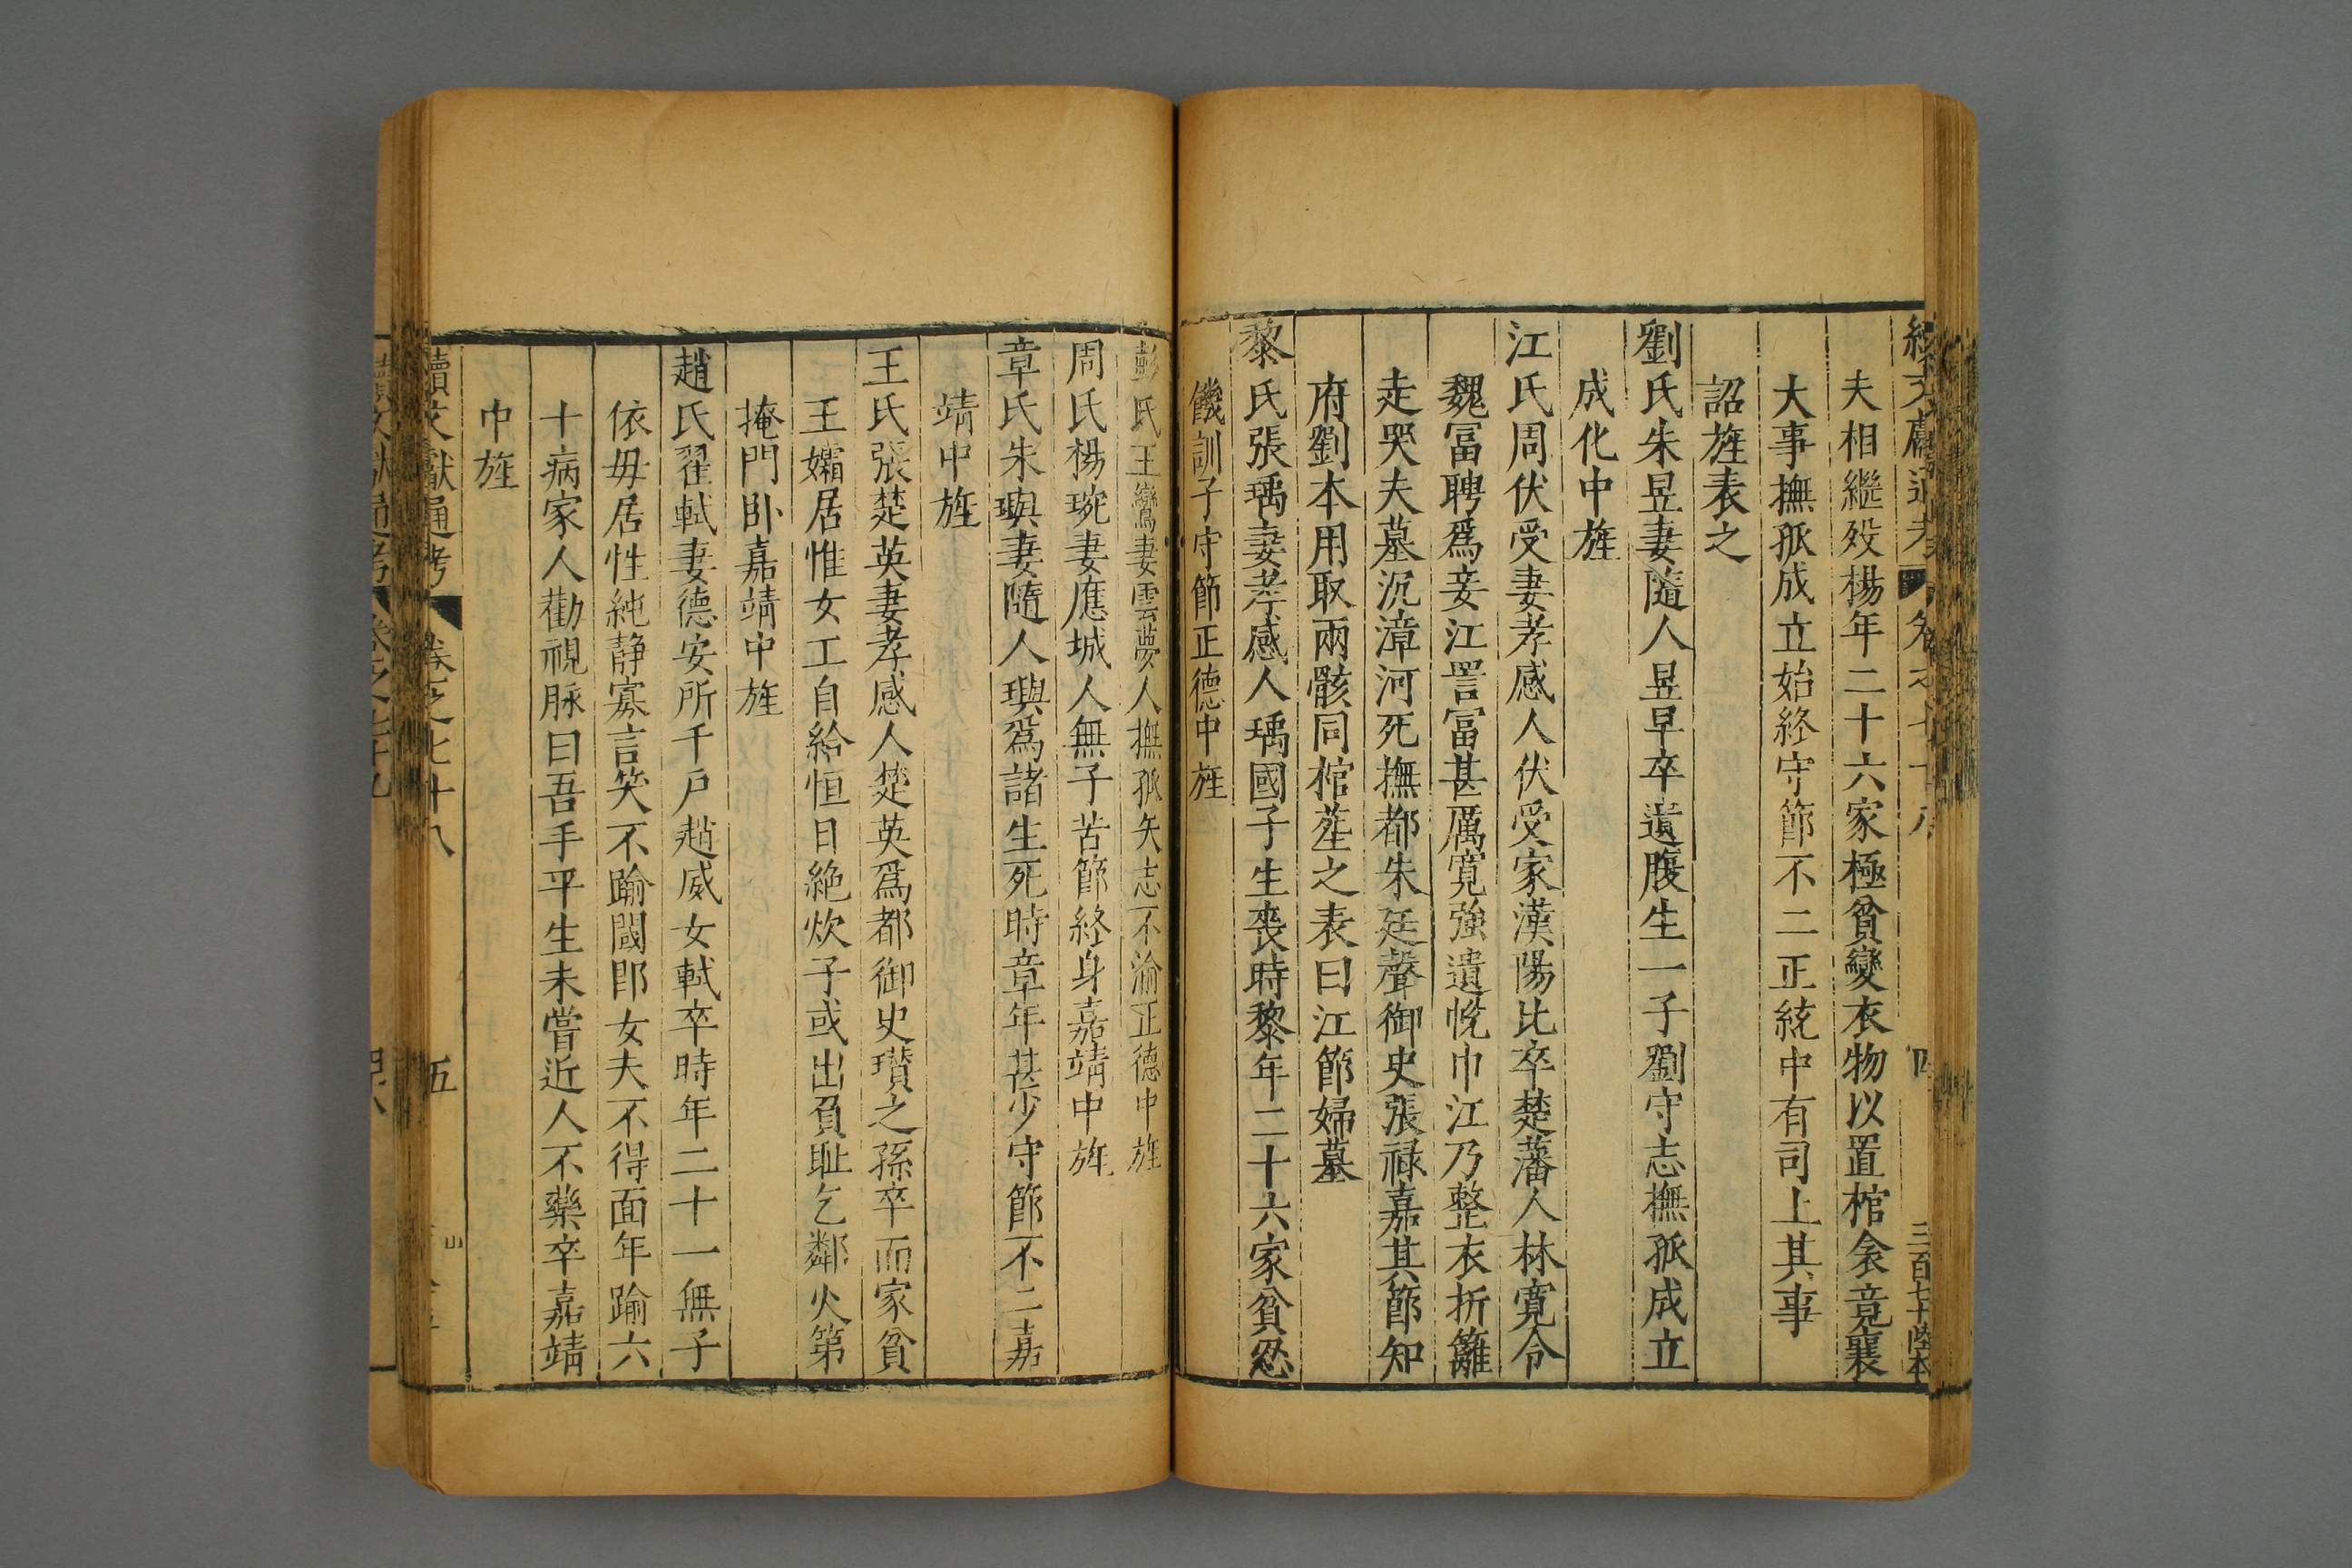 續文獻通考
卷之七十八
四
三百七十陸本
夫相繼歿楊年二十六家極貧變衣物以置棺衾竟襄
大事撫孤成立始終守節不二正統中有司上其事
詔旌表之
劉氏朱昱妻隨人昱早卒遺腹生一子劉守志撫孤成立
成化中旌
江氏周伏受妻孝感人伏受家漢陽比卒楚藩人林寬令
魏冨聘爲妾江詈冨甚厲寬強遺帨巾江乃整衣折籬
走哭夫墓沉漳河死撫都朱廷聲御史張禄嘉其節知
府劉本用取兩骸同棺塟之表曰江節婦墓
黎氏張瑀妻孝感人瑀國子生丧時黎年二十六家貧忍
饑訓子守節正德中旌
彭氏王鸞妻雲夢人撫孤矢志不渝正德中旌
周氏楊琬妻應城人無子苦節終身嘉靖中旌
章氏朱璵妻隨人璵爲諸生死時章年甚少守節不二嘉
靖中旌
王氏張楚英妻孝感人楚英爲都御史瓚之孫卒而家貧
王孀居惟女工自給恒日絶炊子或出負耻乞鄰火第
掩門卧嘉靖中旌
趙氏翟軾妻德安所千戶趙威女軾卒時年二十一無子
依毋居性純静寡言笑不踰閾即女夫不得面年踰六
十病家人勸視脉曰吾手平生未嘗近人不藥卒嘉靖
中旌
續文獻通考
卷之七十八
五
山